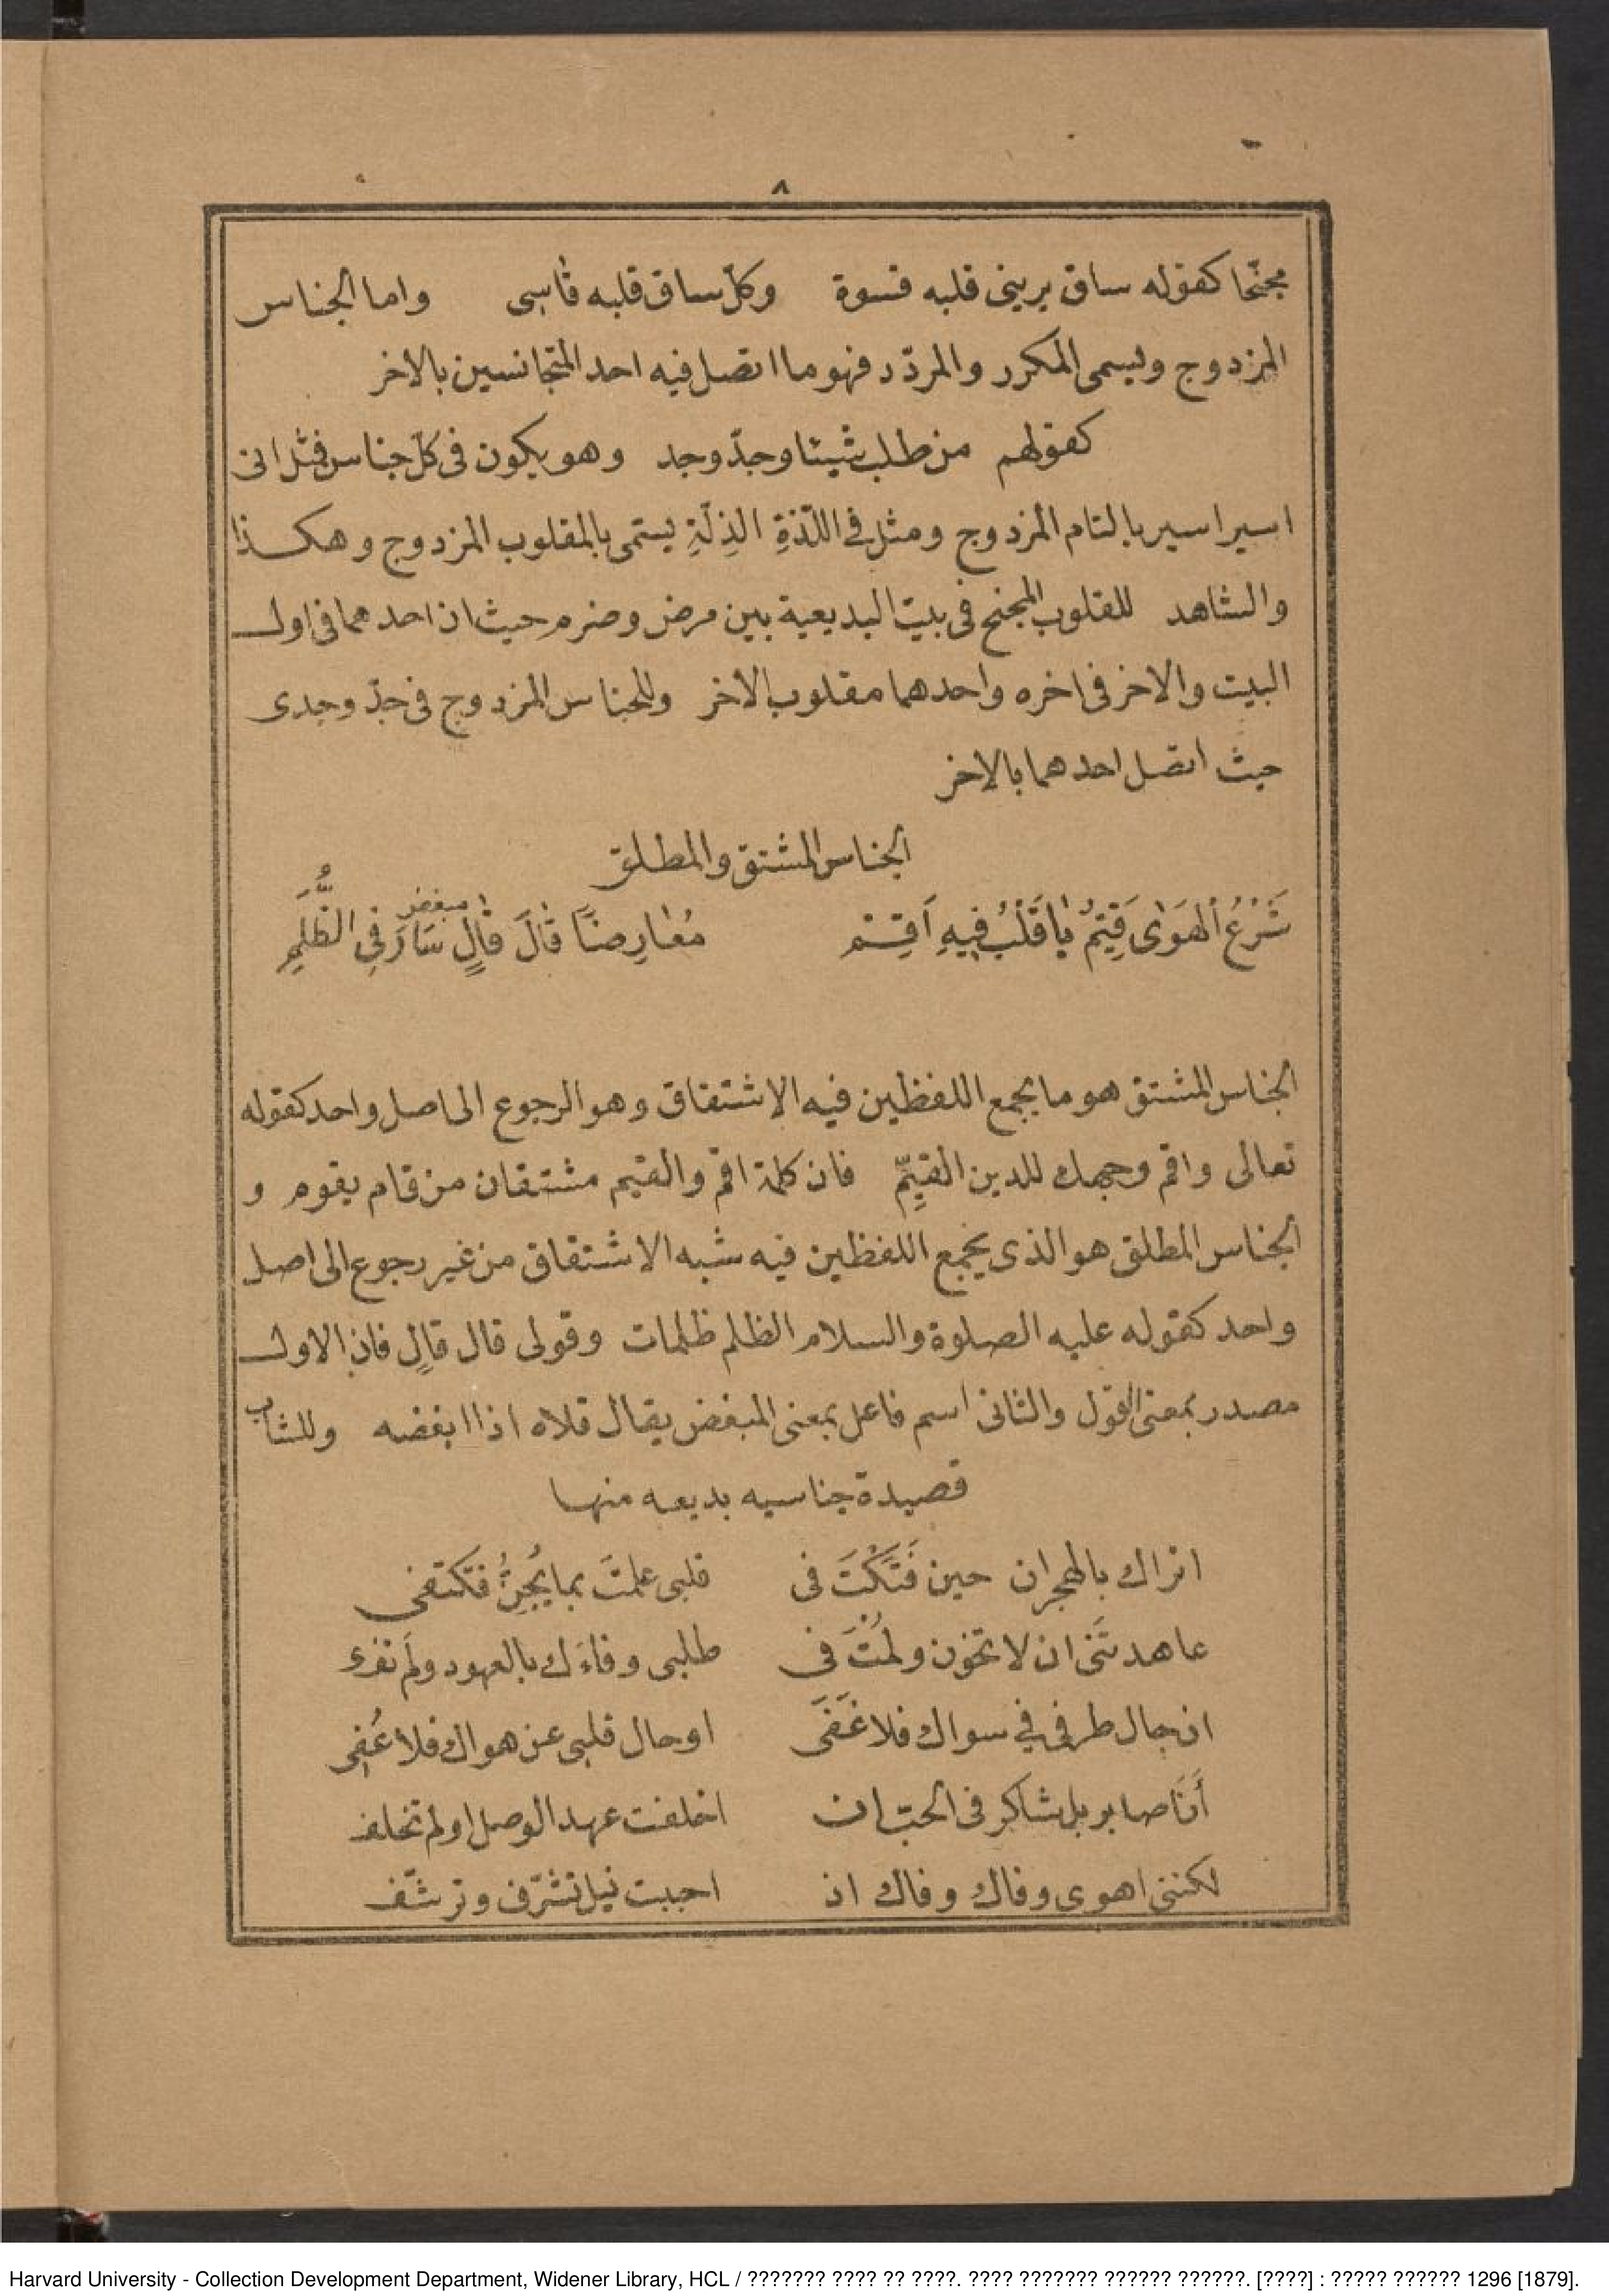 ٨
مجنّحا كقوله ساق يريني قلبه قسوة وكلّ ساق قلبه قاسى واما الجناس
المزدوج ويسمى المكرر والمردّد فهو ما اتصل فيه احد المتجانسين بالاخر
كقولهم من طلب شيئا وجدّ وجد وهو يكون فى كلّ جناس فمثل انى
اسير اسير بالتام المزدوج ومثل فى اللّذةِ الذِلّةِ يسمّى بالمقلوب المزدوج وهكذا
والشاهد للقلوب المجنح فى بيت البديعية بين مرض وضرم حيث ان احدهما فى اول
البيت والاخر فى اخره واحدهما مقلوب الاخر وللجناس المزدوج فى جدّ وجدى
حيث اتصل احدهما بالاخر
الجناس المشتق والمطلق
شَرْعُ الهَوٰى قَيِّمٌ يٰا قَلْبُ فِيهِ اَقِمْ مُعٰارِضًا قٰالَ قٰالٍ سَارَ فِى الظُّلَمِ
مبغض
الجناس المشتق هو ما يجمع اللفظين فيه الاشتقاق وهو الرجوع الى اصل واحد كقوله
تعالى واقم وجهك للدين القيِّم فان كلمة اقم والقيم مشتقان من قام يقوم و
الجناس المطلق هو الذى يجمع اللفظين فيه شبه الاشتقاق من غير رجوع الى اصل
واحد كقوله عليه الصلوة والسلام الظلم ظلمات وقولى قال قالٍ فان الاول
مصدر بمعنى القول والثانى اسم فاعل بمعنى المبغض يقال قلاه اذا ابغضه وللشاب
قصيدة جناسيه بديعه منها
اتراك بالهجران حين فَتَكْتَ فى قلبى علمتَ بما يُجِنُّ فتكتفى
عاهدتَنى ان لا تخون ولمُتَ فى طلبى وفاءَك بالعهود ولَم تفِ
ان جال طرفى فى سواك فلا غَفَى او حال قلبى عن هواك فلا عُفِى
أَنَا صابر بل شاكر فى الحبّ ان اخلفت عهد الوصل او لم تخلف
لكننى اهوى وفاك وفاك اذ احببت نيل تشرّف وترشّف
Harvard University - Collection Development Department, Widener Library, HCL / ??????? ???? ?? ????. ???? ??????? ?????? ??????. [????] : ????? ?????? 1296 [1879].